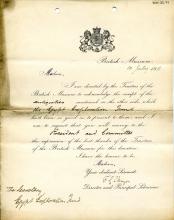 British Museum
Madam,
I am directed by the Trustees of the
British Museum to acknowledge the receipt of the
antiquities mentioned on the other side, which
the Egypt Exploration Fund
has been so good as to present to them; and I
am to request that you will convey to the
President and Committee
the expression of the best thanks of the Trustees
of the British Museum for this donation.
I have the honour to be
Madam,
Your obedient Servant
Director and Principal Librarian
The Secretary
Egypt Exploration Fund